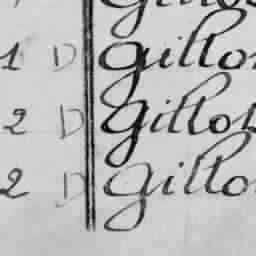 1 D Gillo
2 D Gillot
2 D Gillo